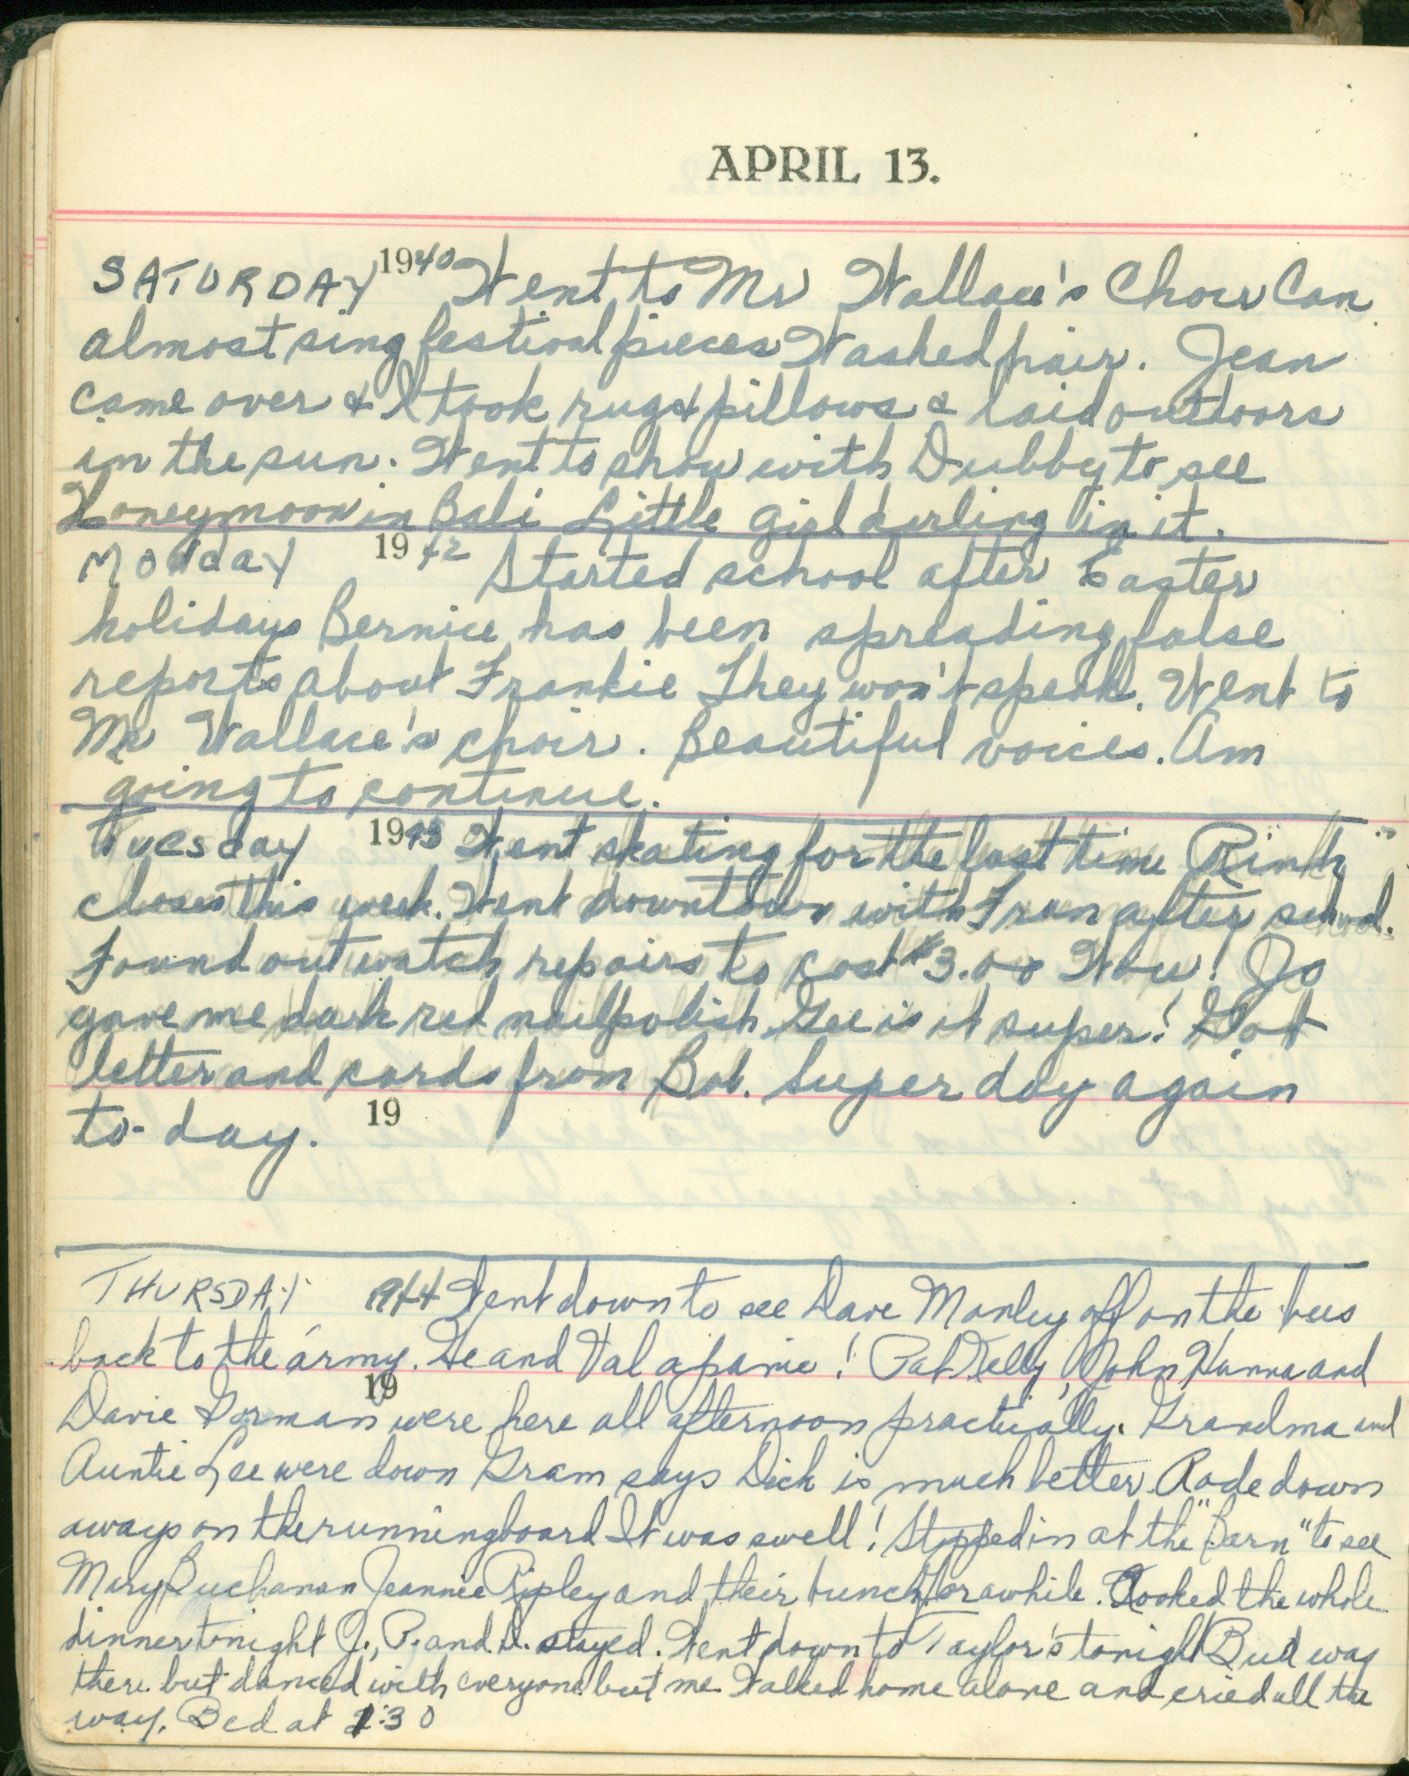 APRIL 13.
SATURDAY 1940 Went to Mr Wallace's Choir Can
almost sing festival pieces Washed hair. Jean
came over & I took rug & pillows & laid outdoors
in the sun. Went to show with Dubby to see
Honeymoon in Bali Little girl darling in it.
Monday 1942 Started school after Easter
holidays Bernice has been spreading false
reports about Frankie They won't speak. Went to
Mr Wallace's choir. Beautiful voices. Am
going to continue.
Tuesday 1943 Went skating for the last time Rink
closes this week. Went downtown with Fran after school.
Found out watch repairs to cost $3.00 Wow! Jo
gave me dark red nailpolish Gee is it super! Got
letter and cards from Bob. Super day again
to-day. 19
THURSDAY 1944 Went down to see Dave Manley off on the bus
back to the army. He and Val a panic! Pat Kelly, John Hanna and
19
Davie Gorman were here all afternoon practically. Grandma and
Auntie Lee were down Gram says Dick is much better. Rode down
aways on the runningboard It was swell! Stopped in at the "Barn" to see
Mary Buchanan Jeannie Ripley and their bunch for awhile. Cooked the whole
dinner tonight J., P. and D. stayed. Went down to Taylor's tonight Bud was
there but danced with everyone but me Walked home alone and cried all the
way. Bed at 1:30